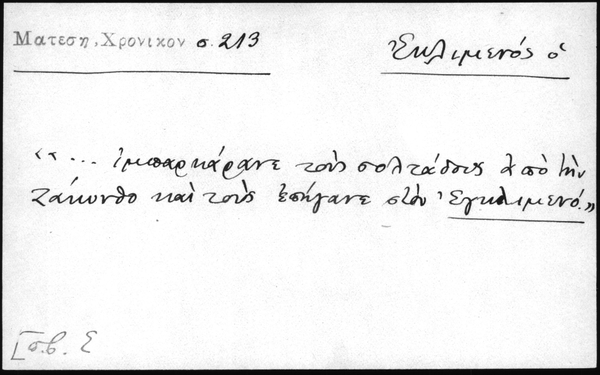 Ματεση, Χρονικον σ. 213
Ἐκλιμενός ὁ
«... ἐμπαρκάρανε τοὺς σολτάδους ἀπὸ τὴν
Ζάκυνθο καὶ τοὺς ἐπήγανε στὸν Ἐγκλιμενό.»
σ.β. Σ